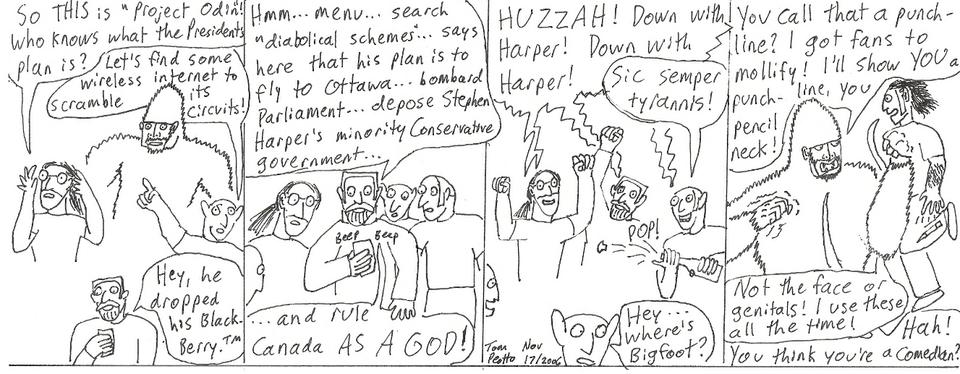 So THIS is "Project Odin!"
Who knows what the Presidents
plan is?
Let's find some
wireless internet to
scramble its
circuits!
Hey, he
dropped
his Black-
Berry.™
Hmm... menu... search
"diabolical schemes... says
here that his plan is to
fly to Ottawa... bombard
Parliament... depose Stephen
Harper's minority Conservative
government...
BEEP BEEP
...and rule
Canada AS A GOD!
HUZZAH! Down with
Harper! Down with
Harper!
Sic semper
tyrannis!
POP!
Hey...
where's
Bigfoot?
Tom Nov
17/2006
You call that a punch-
line? I got fans to
mollify! I'll show YOU a
punch-
line, you
pencil
neck!
Not the face or
genitals! I use these
all the time!
Hah!
You think you're a comedian?